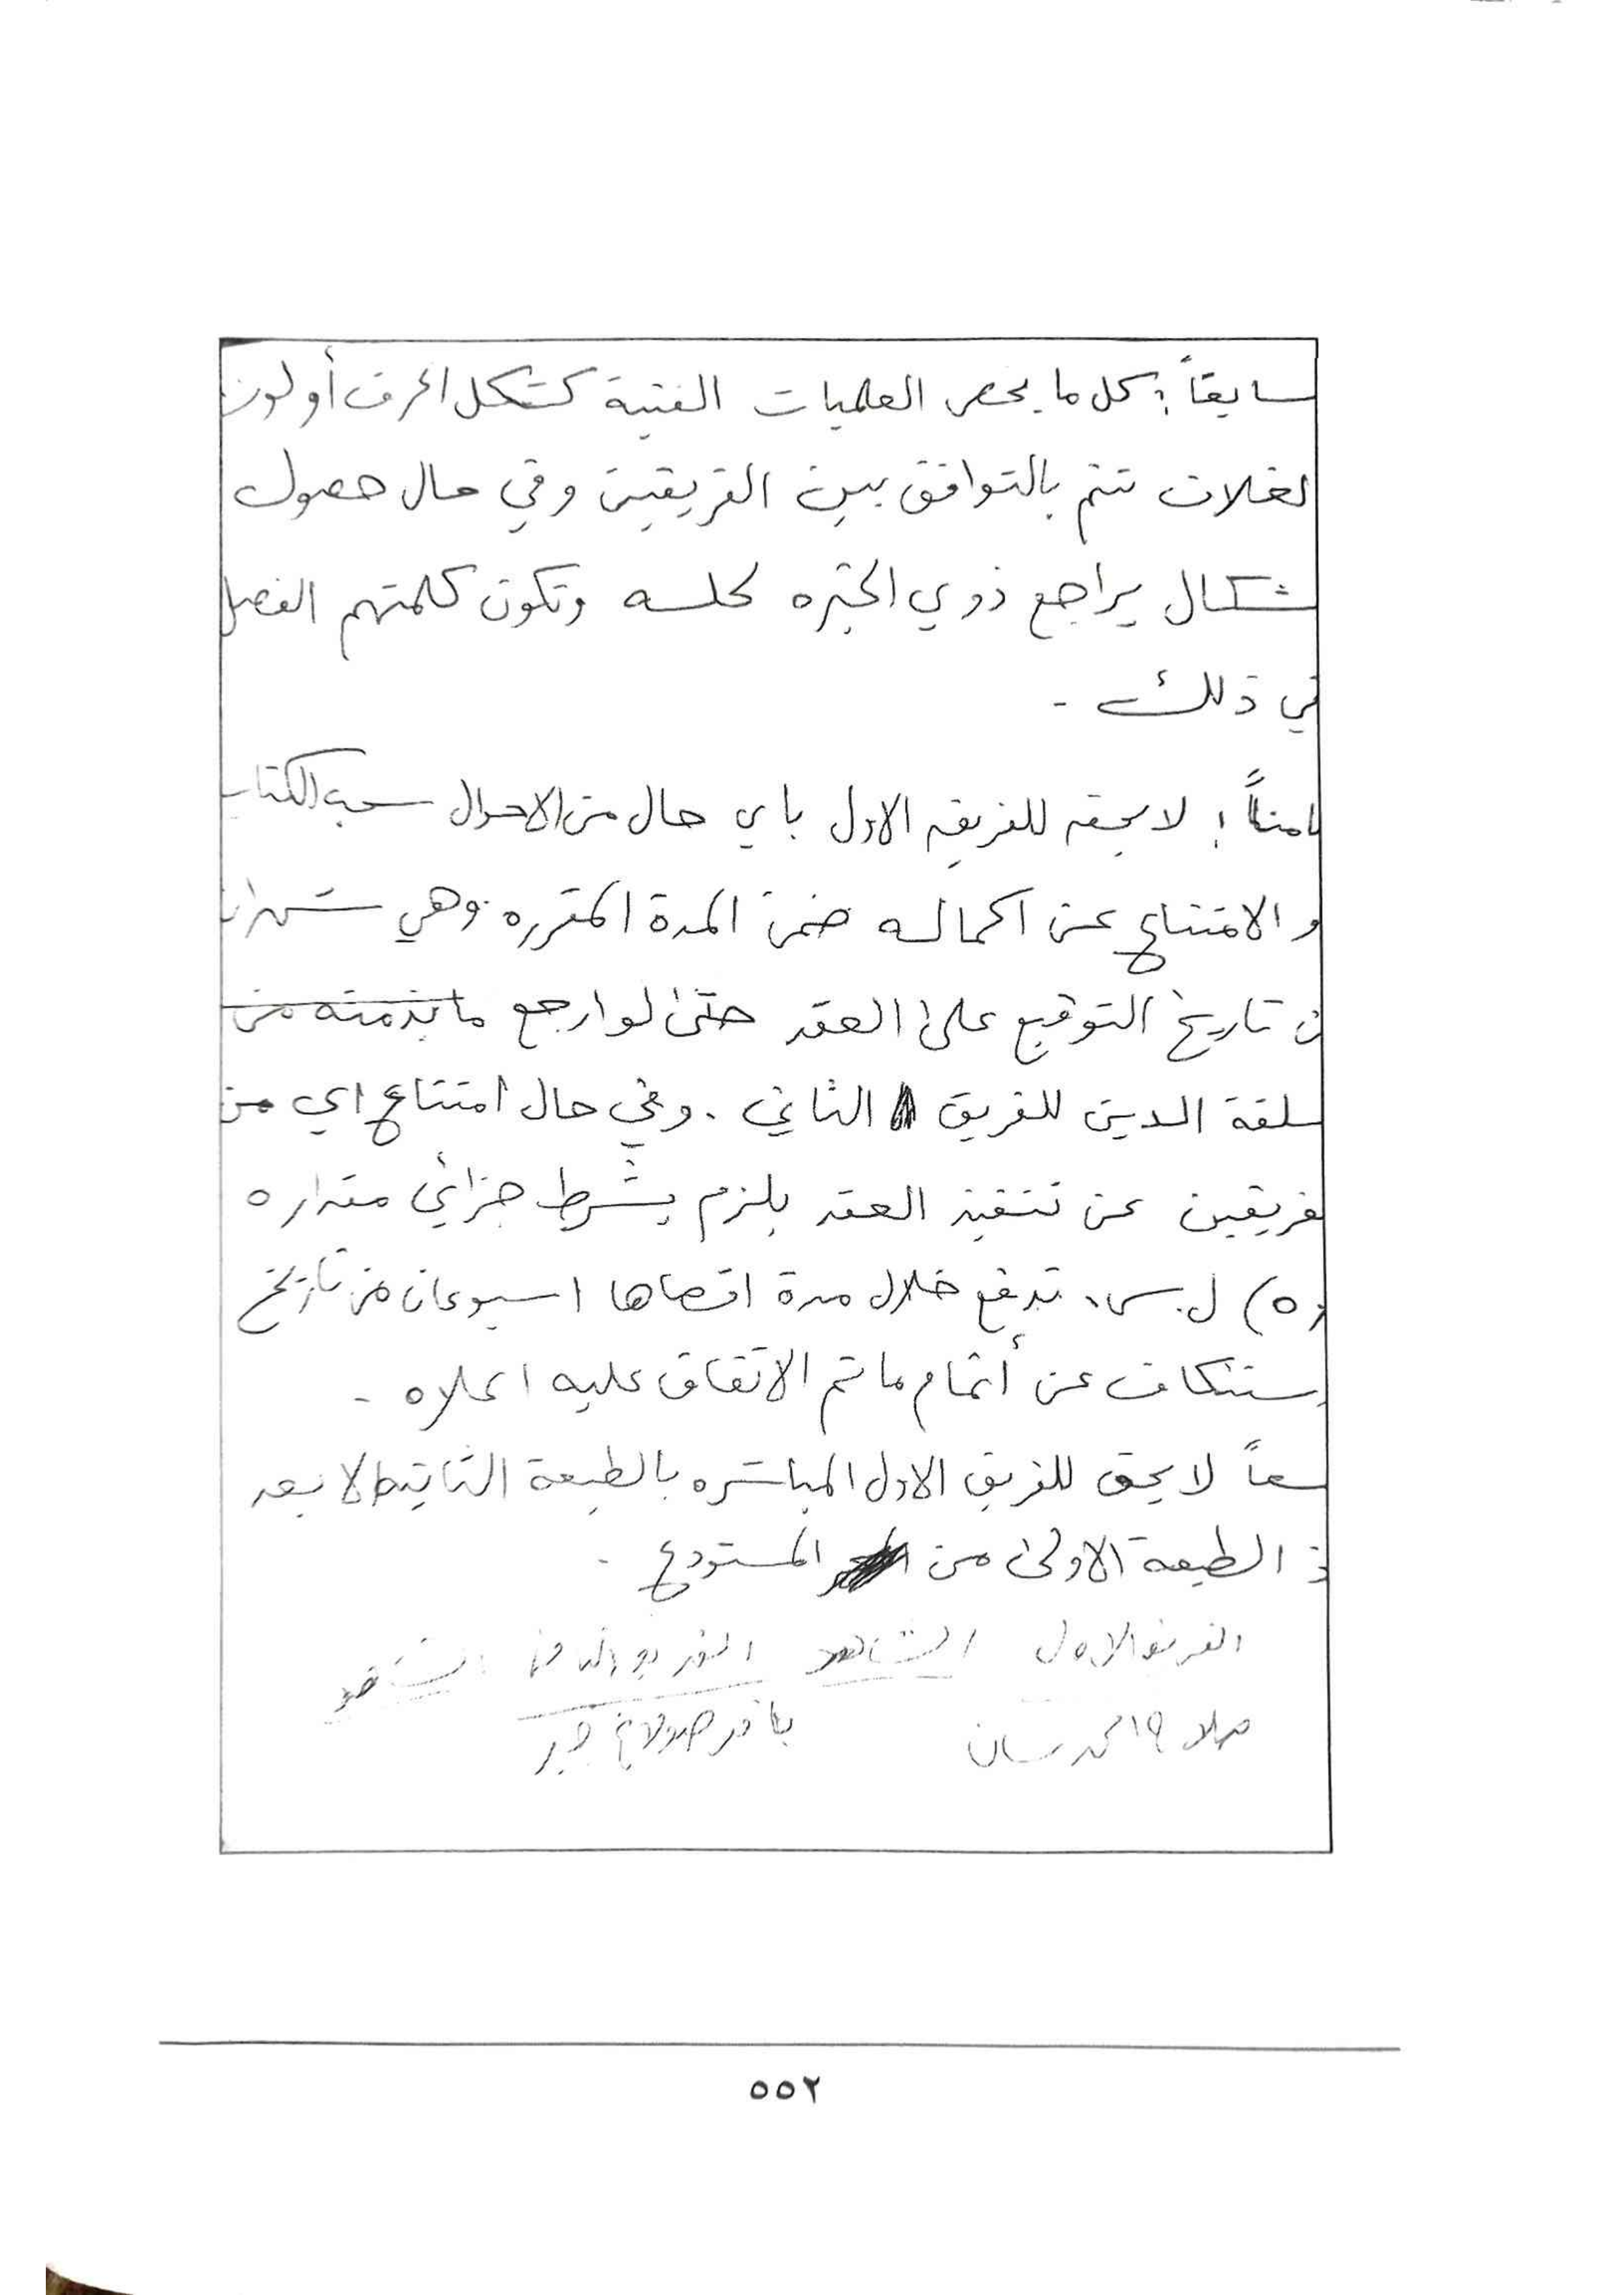 سابعاً: كل ما يخص العمليات الفنية كشكل الحرف أو لون
لغلاف تتم بالتوافق بين الفريقين وفي حال حصول
شكال يراجع ذوي الخبره لحله وتكون كلمتهم الفصل
في ذلك .
ثامناً : لا يحق للفريق الاول باي حال من الاحوال سحب الكتاب
و الامتناع عن اكماله ضمن المدة المقرره وهي شهران
ن تاريخ التوقيع على العقد حتى لو ارجع ما بذمته من
سلفة الدين للفريق الثاني . وفي حال امتناع اي من
لفريقين عن تنفيذ العقد يلزم بشرط جزائي مقداره
٥) ل.س. تدفع خلال مدة اقصاها اسبوعان من تاريخ
ستنكاف عن أتمام ما تم الاتفاق عليه اعلاه .
سعاً لا يحق للفريق الاول المباشره بالطبعة الثانية الا بعد
ذ الطبعة الاولى من المستودع .
الفريق الاول الشاهد الفريق الثاني الشاهد
باقر صولاغ جبر
٥٥٢